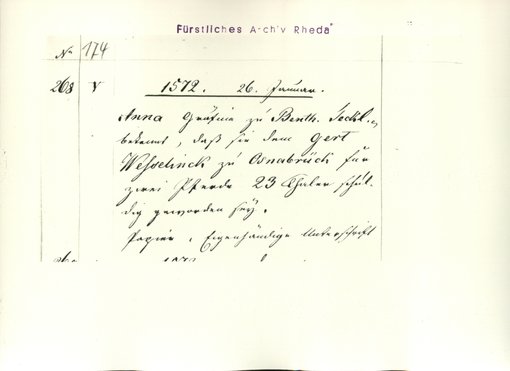 Fürstliches Archiv Rheda
No 174
268 V 1572. 26. Januar.
Anna Gräfin zu Benth. Teckl.
bekennt, daß sie dem Gert
Wesselinck zu Osnabrück für
zwei Pferde 23 Thaler schul-
dig geworden sey.
Papier, Eigenhändige Unterschrift